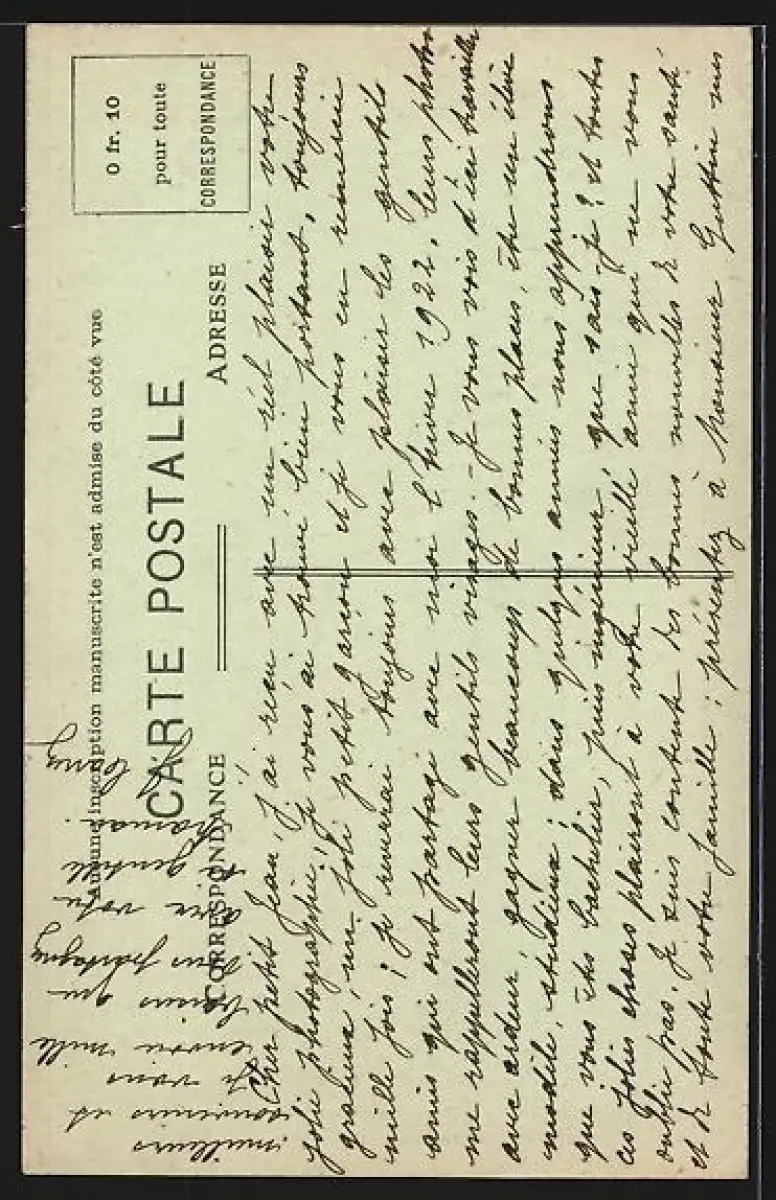 Aucune inscription manuscrite n'est admise du côté vue
CARTE POSTALE
CORRESPONDANCE
ADRESSE
0 fr. 10
pour toute
CORRESPONDANCE
Cher petit Jean, j'ai reçu avec un réel plaisir votre
jolie photographie, je vous ai trouvé bien portant, toujours
gracieux, un joli petit garçon et je vous en remercie
mille fois; je reverrai toujours avec plaisir les gentils
amis qui ont partagé avec moi l'hiver 1922, leurs photos
me rappelleront leurs gentils visages. - Je vous vois d'ici travailler
avec ardeur, gagner beaucoup de bonnes places, être un élève
modèle, studieux; dans quelques années nous apprendrons
que vous êtes bachelier, puis ingénieur, que sais-je? et toutes
ces jolies choses plairont à votre vieille amie qui ne vous
oublie pas. Je suis contente des bonnes nouvelles de votre santé
et de toute votre famille; présentez à Monsieur mes
meilleurs
souvenirs et
je vous
envoie mille
baisers que
vous partagerez
avec votre
si gentille
maman.